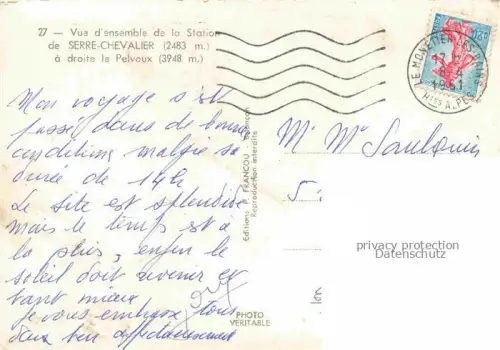 27 — Vue d'ensemble de la Station
de SERRE-CHEVALIER (2483 m.)
à droite le Pelvoux (3948 m.)
Mon voyage s'est
passé dans de bonnes
conditions malgré sa
durée de 14h
Le site est splendide
mais le temps est à
la pluie, enfin le
soleil doit revenir et
tant mieux
je vous embrasse tous
deux bien affectueusement
Editions P. FRANCOU - Briançon
Reproduction interdite
PHOTO
VERITABLE
LE MONETIER
1961
Htes ALPES
M. Mme
privacy protection
Datenschutz